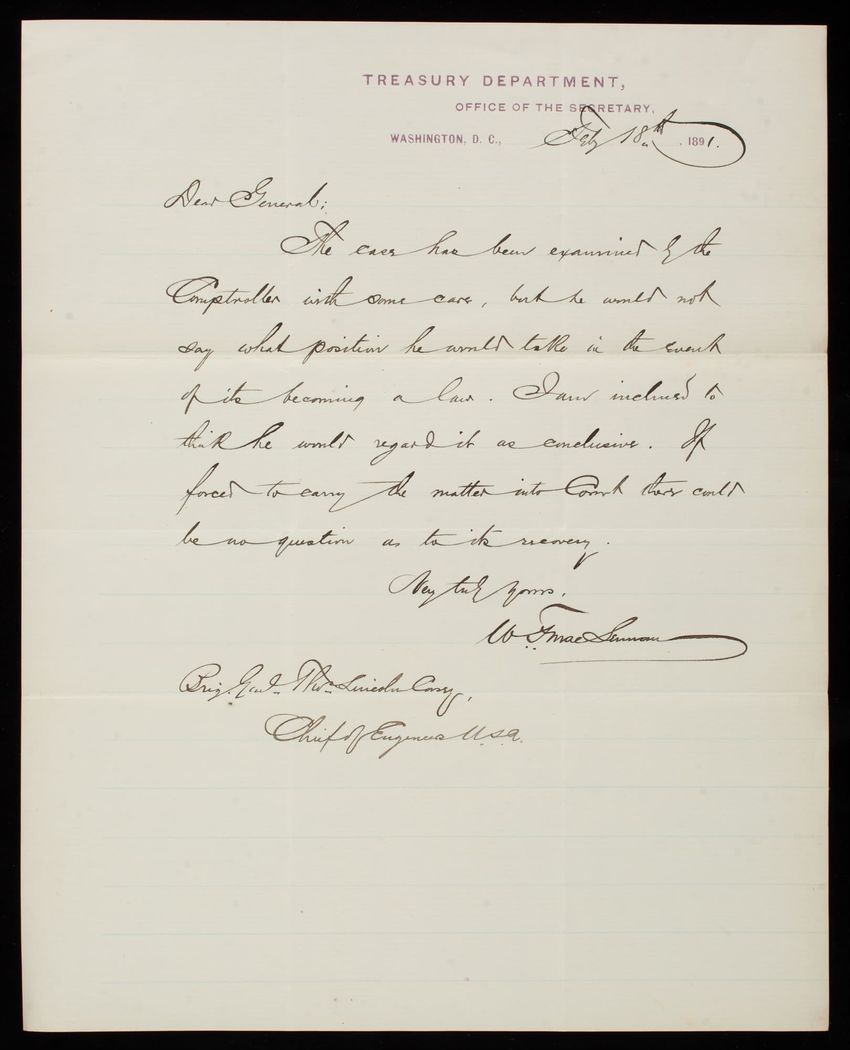 TREASURY DEPARTMENT,
OFFICE OF THE SECRETARY,
WASHINGTON, D. C., Feby 18th, 1891.
Dear General:
The case has been examined by the
Comptroller with some care, but he would not
say what position he would take in the event
of its becoming a law. I am inclined to
think he would regard it as conclusive. If
forced to carry the matter into Court there could
be no question as to its recovery.
Very truly yours,
W. F. MacLennan
Brig. Genl. Thos. Lincoln Casey,
Chief of Engineers U.S.A.